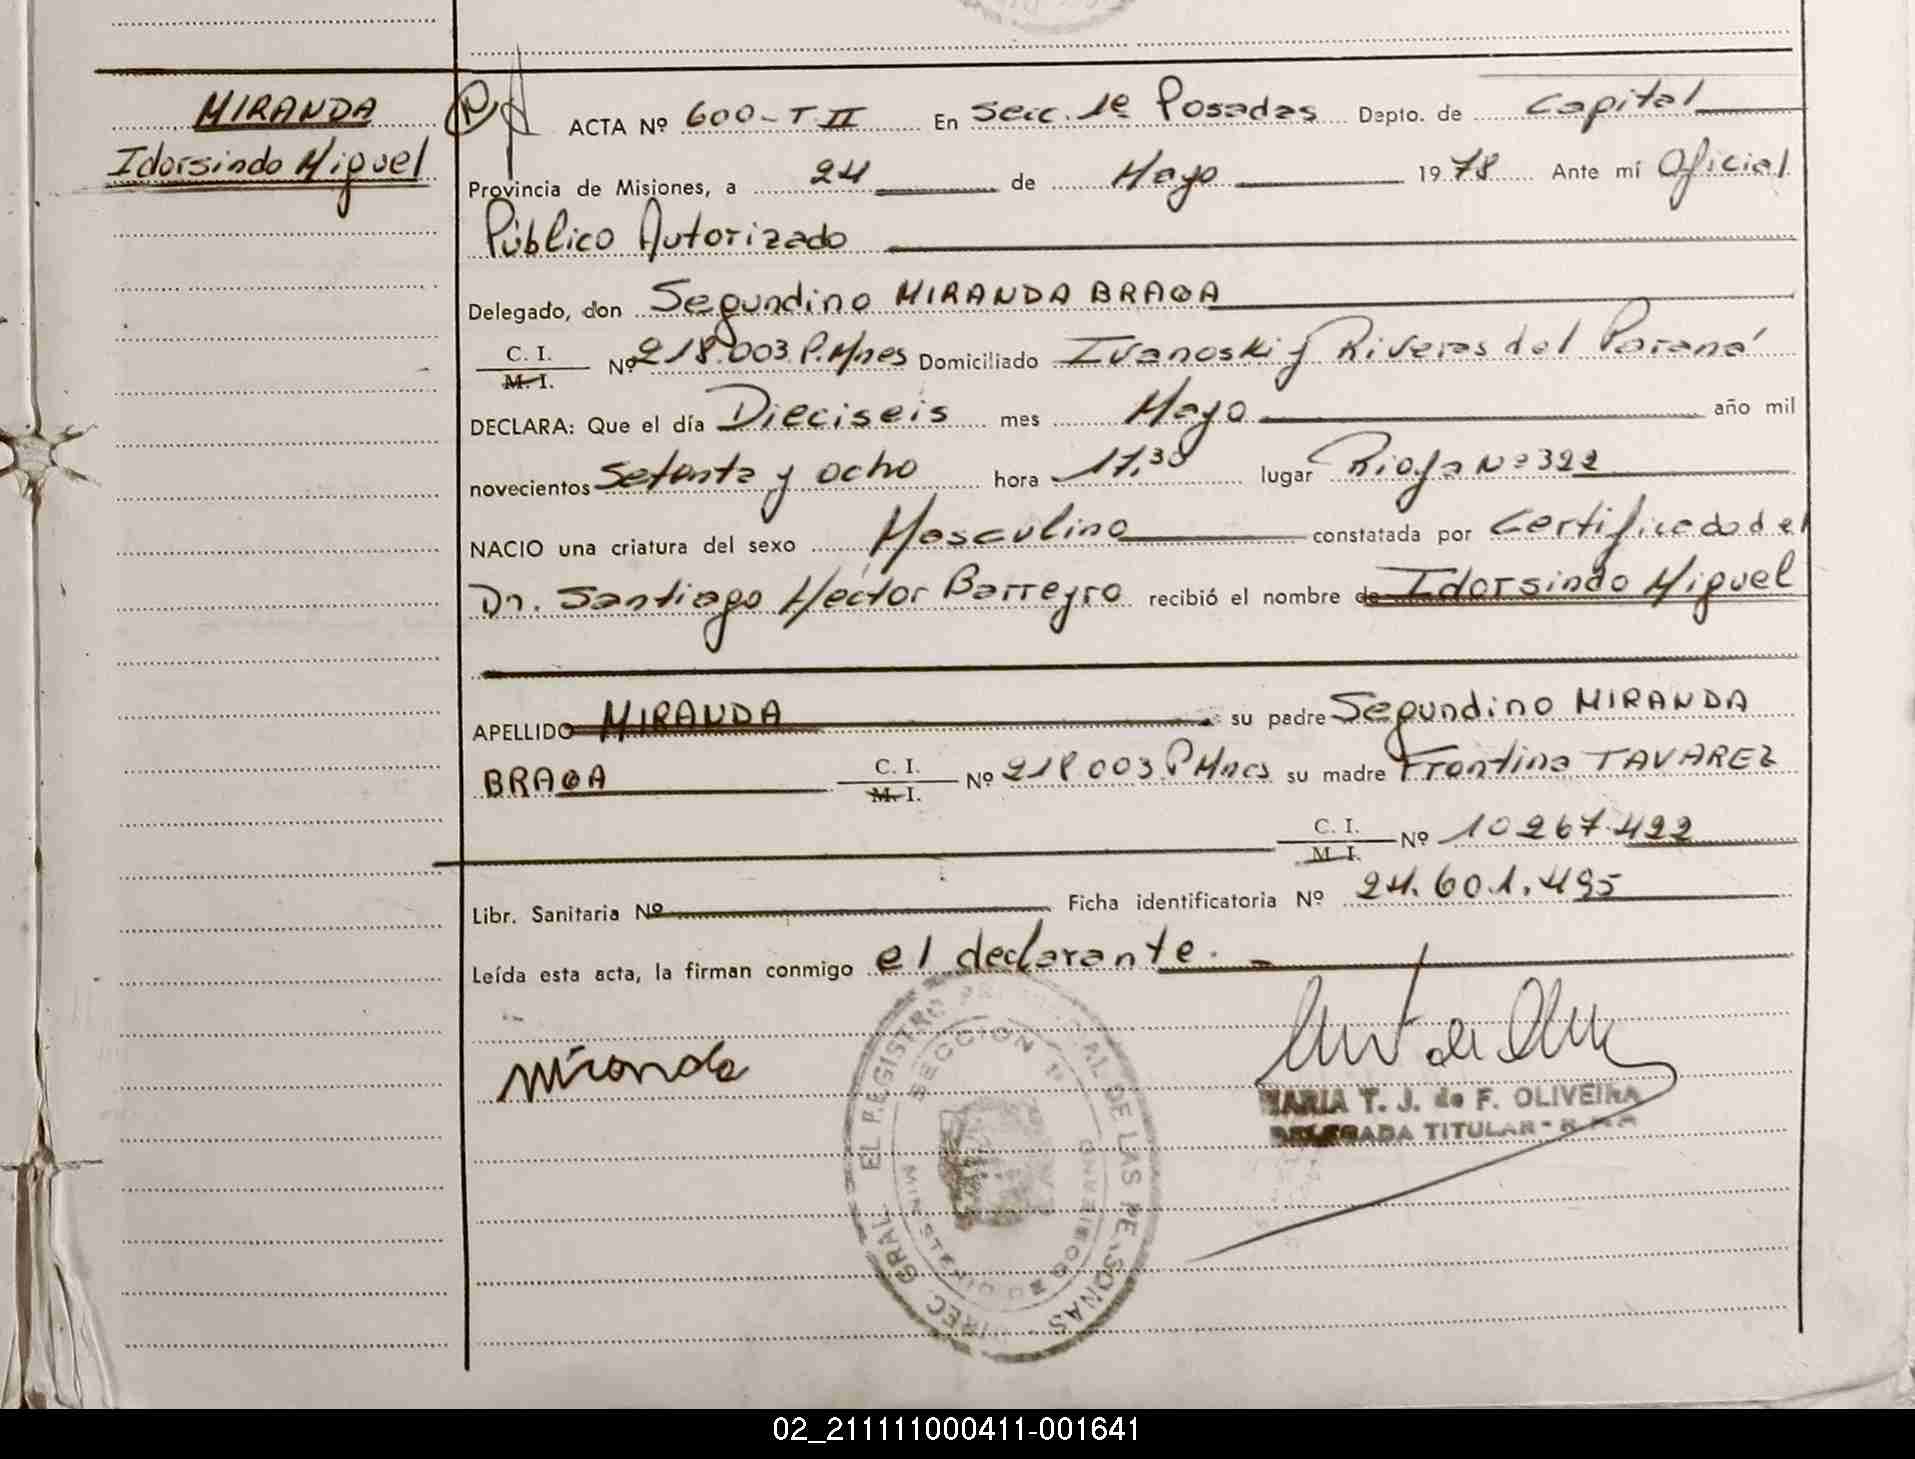 MIRANDA
Idorsindo Miguel
ACTA Nº 600-T II En Secc. 1ª Posadas Depto. de Capital
Provincia de Misiones, a 24 de Mayo 1978 Ante mí Oficial
Público Autorizado
Delegado, don Segundino MIRANDA BRAGA
C. I.
M. I.
Nº 218.003 P. Mnes Domiciliado Ivanoski y Riveras del Paraná
DECLARA: Que el día Dieciseis mes Mayo año mil
novecientos Setenta y ocho hora 17,30 lugar Rioja Nº 322
NACIO una criatura del sexo Masculino constatada por Certificado del
Dr. Santiago Héctor Barreyro recibió el nombre de Idorsindo Miguel
APELLIDO MIRANDA su padre Segundino MIRANDA
BRAGA
C. I.
M. I.
Nº 218.003 P Mnes su madre Frontina TAVAREZ
C. I.
M. I.
Nº 10267.422
Libr. Sanitaria Nº Ficha identificatoria Nº 24.601.495
Leída esta acta, la firman conmigo el declarante.
Miranda
MARIA T. J. de F. OLIVEIRA
DELEGADA TITULAR-
DIREC. GRAL. EL REGISTRO PROVINCIAL DE LAS PERSONAS
SECCION 1ª
MINISTERIO DE GOBIERNO
02_211111000411-001641